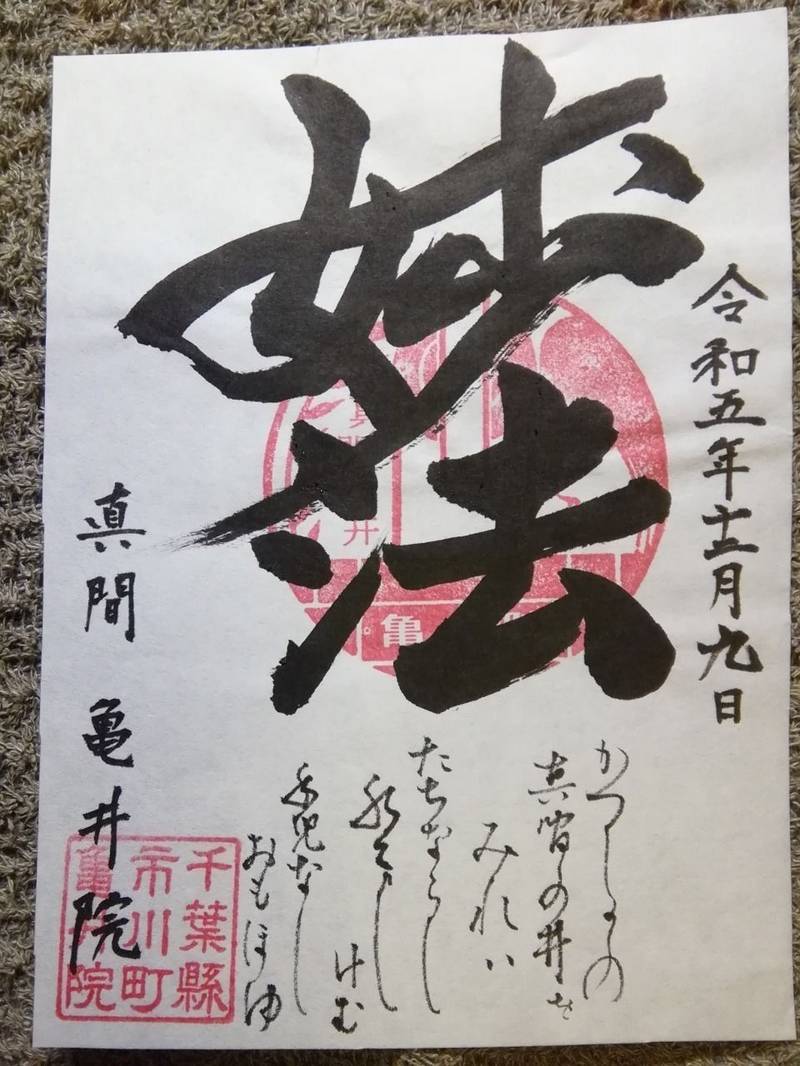 令和五年十二月九日
妙法
かつしかの
真間の井を
みれハ
たちならし
水くまし
けむ
手児なし
おもほゆ
真間 亀井院
千葉縣
市川町
亀井院